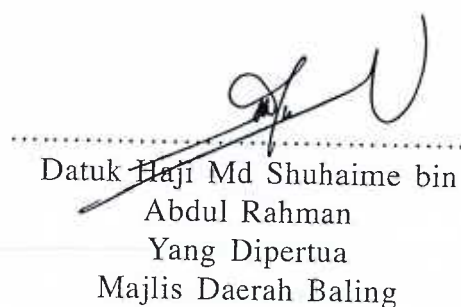 Datuk Haji Md Shuhaime bin
Abdul Rahman
Yang Dipertua
Majlis Daerah Baling